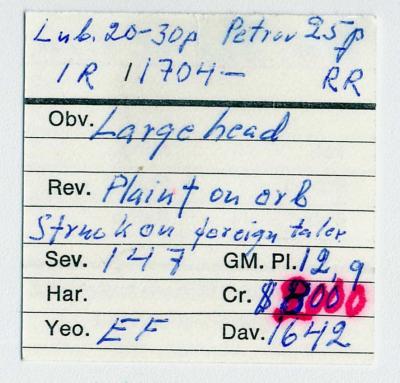 Lub. 20-30p Petrov 25p
1R 1704- RR
Obv. Large head
Rev. Plain † on orb
Struck on foreign taler
Sev. 147 GM. Pl. 12,9
Har. Cr. $8000
Yeo. EF Dav. 1642